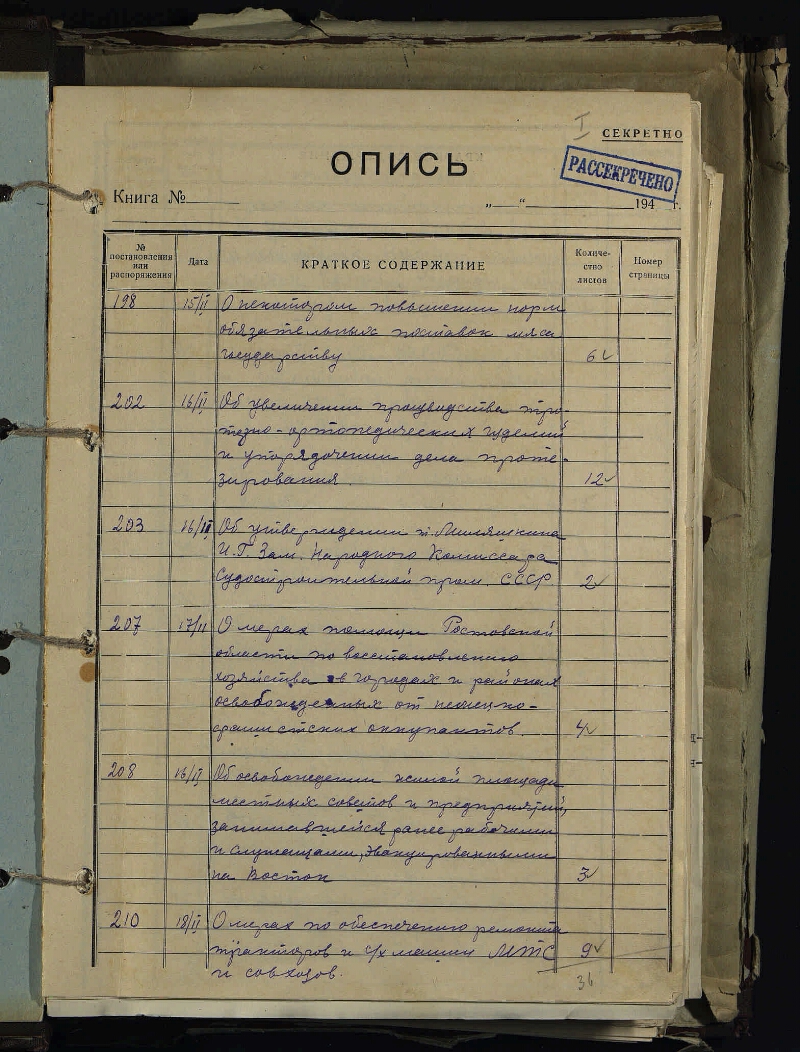 I
СЕКРЕТНО
ОПИСЬ
РАССЕКРЕЧЕНО
Книга №
„ “ 194 г.
№ постановления или распоряжения
Дата
КРАТКОЕ СОДЕРЖАНИЕ
Количе-
ство
листов
Номер
страницы
198 15/II О некотором повышении норм
обязательных поставок мяса
государству 6
202 16/II Об увеличении производства про-
тезно-ортопедических изделий
и упорядочении дела проте-
зирования. 12
203 16/II Об утверждении т. Милляшкина
И.Г. Зам. Народного Комиссара
Судостроительной пром. СССР 2
207 17/II О мерах помощи Ростовской
области по восстановлению
хозяйства в городах и районах
освобожденных от немецко-
фашистских оккупантов. 4
208 16/II Об освобождении жилой площади
местных советов и предприятий,
занимавшейся ранее рабочими
и служащими, эвакуированными
на Восток 3
210 18/II О мерах по обеспечению ремонта
тракторов и с/х машин МТС 9
и совхозов. 36